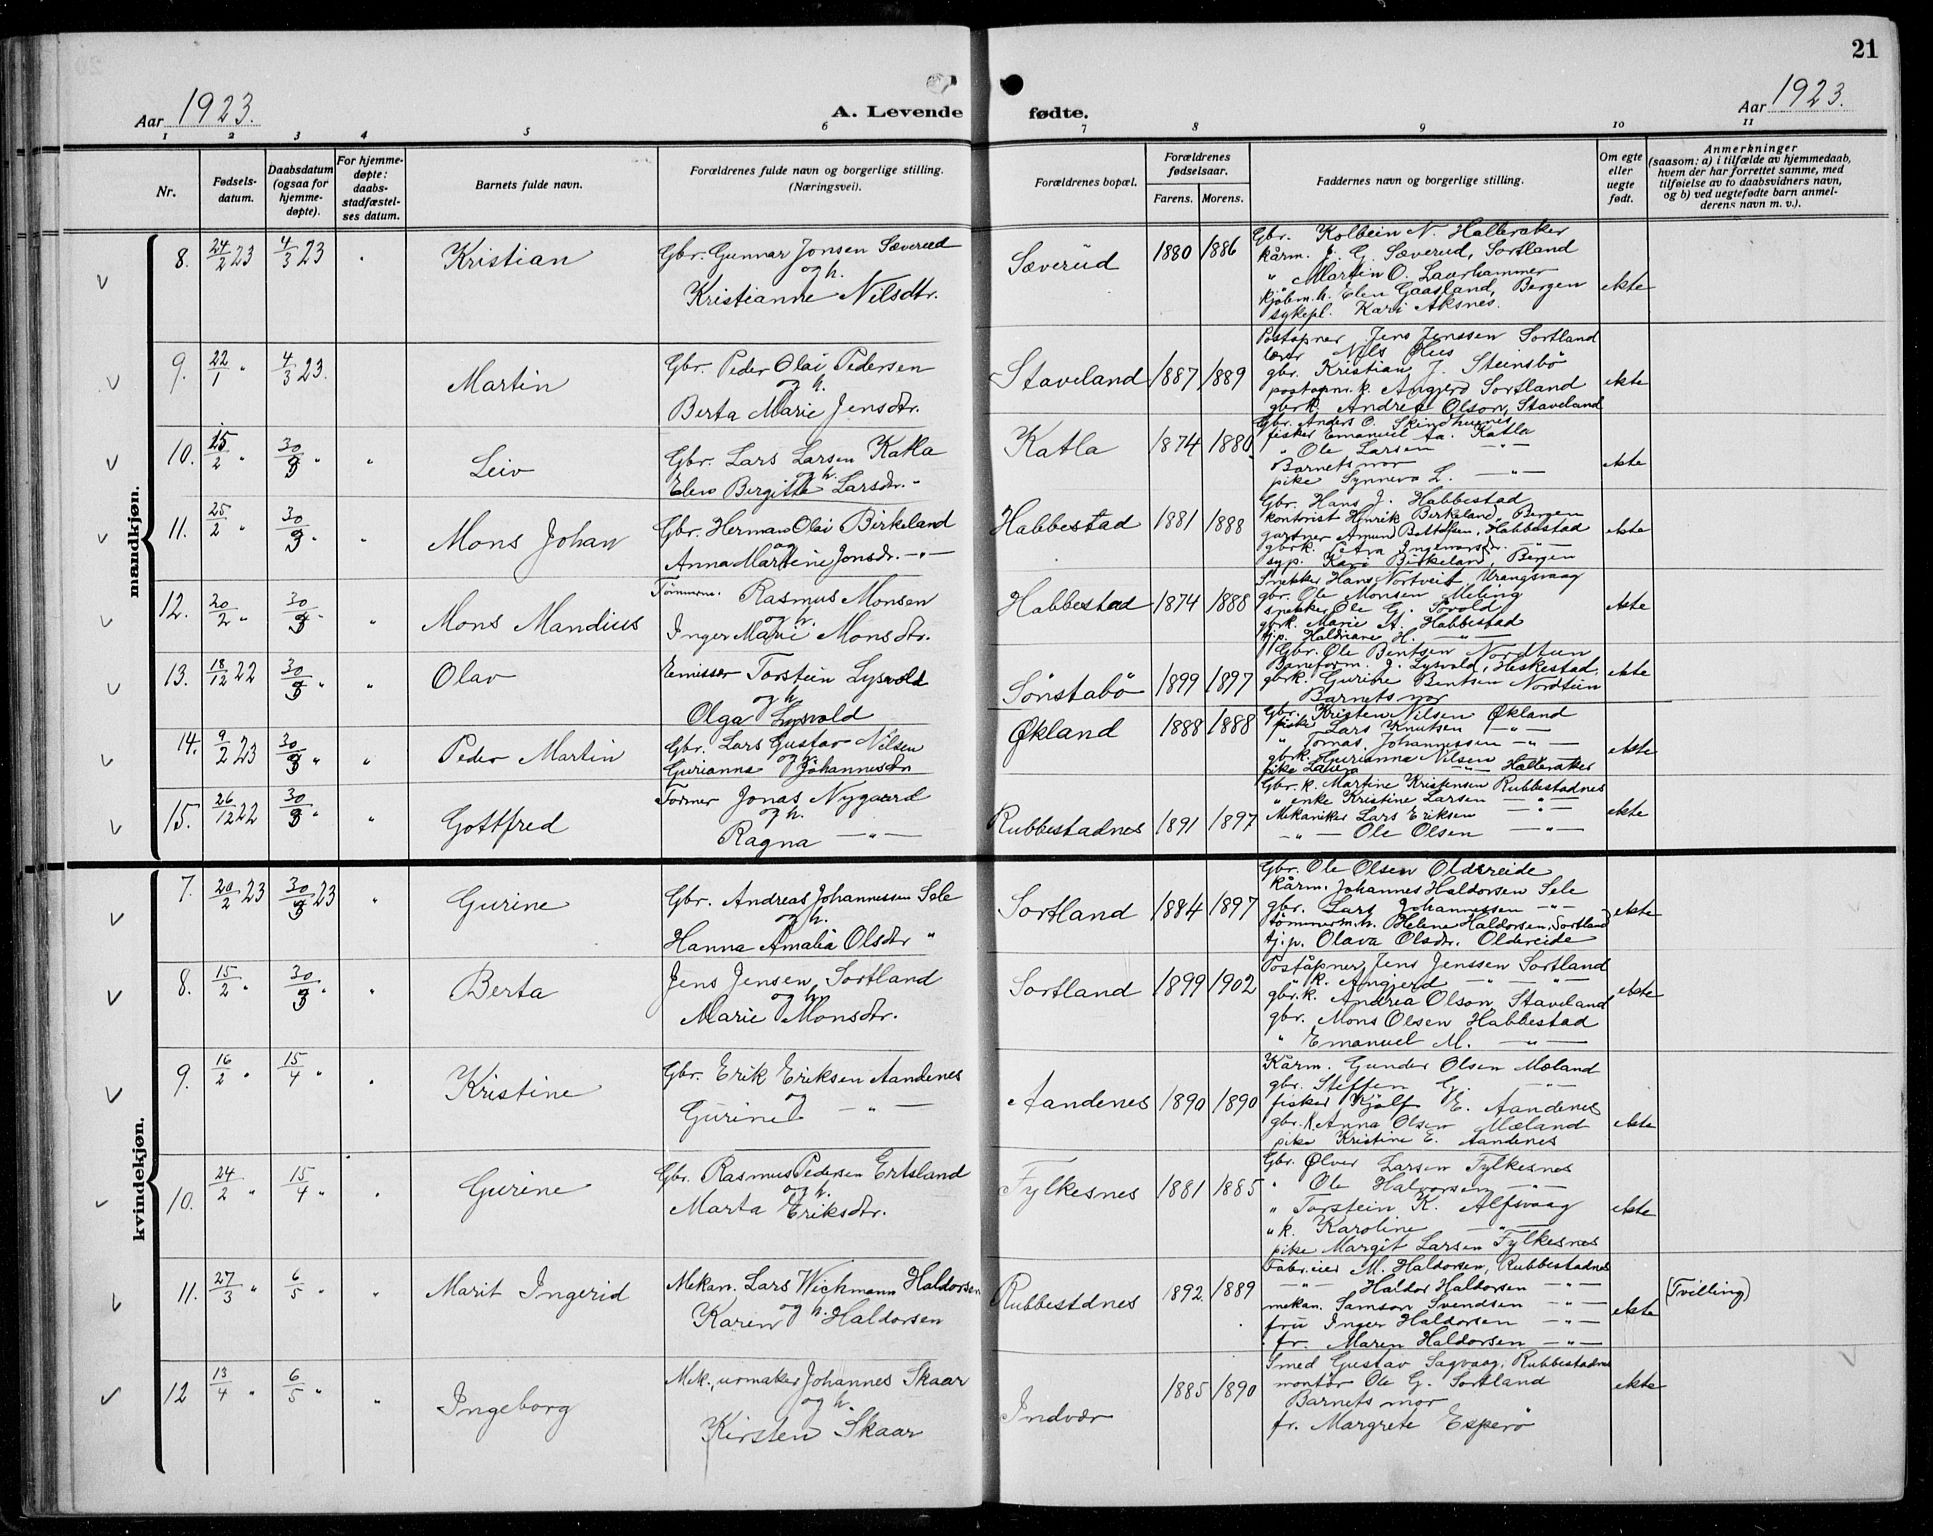 21
Aar 1923.
A. Levende fødte.
Aar 1923.
1 2 3 4 5 6 7 8 9 10 11
Nr.
Fødselsdatum.
Daabsdatum (ogsaa for hjemmedøpte).
For hjemmedøpte: daabsstadfæstelses datum.
Barnets fulde navn.
Forældrenes fulde navn og borgerlige stilling. (Næringsvei).
Forældrenes bopæl.
Forældrenes fødselsaar.
Farens. Morens.
Faddernes navn og borgerlige stilling.
Om egte eller uegte født.
Anmerkninger
(saasom: a) i tilfælde av hjemmedaab, hvem der har forrettet samme, med tilføielse av to daabsvidners navn, og b) ved uegtefødte barn anmelderens navn m. v.).
mandkjøn.
8. 24/2 23 4/3 23 Kristian
Gbr. Gunnar Jonsen Sæverud
og h.
Kristianne Nilsdtr.
Sæverud 1880 1886
Gbr. Kolbein N. Halleraker
kårm. J. G. Sæverud, Sortland
" Martin O. Laurhammer
kjøbm. h. Elen Gaasland, Bergen
sykepl. Kari Aksnes.
ekte
9. 22/1 " 4/3 23. Martin
Gbr. Peder Olai Pedersen
og h.
Berta Marie Jensdtr.
Staveland 1887 1889
Poståpner Jens Jenssen Sortland
lærer Nils Hus
gbr. Kristian J. Steinsbö
postopnr. k. Angjerd Sortland
gbrk. Andrea Olson, Staveland
ekte
10. 15/2 " 30/3 " " Leiv
Gbr. Lars Larsen Katla
og h.
Elen Bergitte Larsdtr. "
Katla 1874 1880
Gbr. Anders O. Skindhuvnes
fisker Emanuel Aa. Katla
" Ole Larsen — " —
Barnets mor
pike Synneva L. — " —
ekte
11. 25/2 " 30/3 " " Mons Johan
Gbr. Herman Olai Birkeland
og
Anna Martine Jonsdr. — " —
Habbestad 1881 1888
Gbr. Hans J. Habbestad
kontorist Henrik Birkeland, Bergen
gartner Amund Bettofsen, Habbestad
gbrk. Petra Ingemarsdr. — " —
syp. Kari Birkeland, Bergen
ekte
12. 20/2 " 30/3 " " Mons Mandius
Tömmerm. Rasmus Monsen
og h.
Inger Marie Monsdtr.
Habbestad 1874 1888
Snekker Hans Nortveit, Urangsvaag
gbr. Ole Monsen Meling
snekker Ole G. Sovold
gbrk. Marie A. Habbestad
tj.p. Haldriane H. — " —
ekte
13. 18/12 22 30/3 " " Olav
Emissær Torstein Lysvold
og h.
Olga Lysvold
Sönstabö 1899 1897
Gbr. Ole Bentsen Nordtun
Baneform. J. Lysvold, Heskestad.
gbrk. Gurine Bentsen Nordtun
Barnets mor
ekte
14. 9/2 23 30/3 " " Peder Martin
Gbr. Lars Gustav Nilsen
og h.
Gurianna Johannesdtr
Økland 1888 1888
Gbr. Kristen Nilsen Økland
fisker Lars Knutsen — " —
" Tomas Johannessen — " —
gbrk. Gurianna Nilsen — " —
pike Laura — " — Halleraker
ekte
15. 26/12 22 30/3 " " Gottfred
Former Jonas Nygaard
og h.
Ragna — " —
Rubbestadnes 1891 1897
Gbr. k. Martine Kristensen Rubbestadnes
" enke Kristine Larsen — " —
Mekaniker Lars Eriksen — " —
— " — Ole Olsen — " —
ekte
kvindekjøn.
7. 20/2 23 30/3 23 " Gurine
Gbr. Andreas Johannessen Sele
og h.
Hanna Amalia Olsdtr "
Sortland 1884 1897
Gbr. Ole Olsen Oldereide
kårm. Johannes Haldorsen Sele
gbr. Lars Johannessen — " —
tömmerm.h. Helene Haldorsen, Sortland
tj.p. Olava Olsdr. Oldereide
ekte
8. 15/2 " 30/3 " " Berta
Jens Jensen Sortland
og h.
Marie Monsdtr.
Sortland 1899 1902
Poståpner Jens Jenssen Sortland
" k. Angjerd — " —
gbr.k. Andrea Olson, Staveland
gbr. Mons Olsen Habbestad
" Emanuel M. — " —
ekte
9. 16/2 " 15/4 " " Kristine
Gbr. Erik Eriksen Aandenes
og
Gurine — " —
Aandenes 1890 1890
Kårm. Gunder Olsen Mæland
gbr. Steffen G. — " —
fisker Kjölf E. Aandenes
gbr.k. Anna Olsen Mæland
pike Kristine E. Aandenes
ekte
10. 24/2 " 15/4 " " Gurine
Gbr. Rasmus Pedersen Ertsland
og h.
Marta Eriksdtr.
Fylkesnes 1881 1885
Gbr. Ølver Larsen Fylkesnes
" Ole Halvorsen — " —
" Torstein K. Alfsvaag
" k. Karoline — " —
pike Margit Larsen Fylkesnes
ekte
11. 27/3 " 6/5 " " Marit Ingerid
Mekan. Lars Wichmann Haldorsen
og h.
Karen Haldorsen
Rubbestdnes 1892. 1889
Fabr.eier M. Haldorsen, Rubbestadnes
— " — Haldor Haldorsen — " —
mekan. Samson Svendsen — " —
fru Inger Haldorsen — " —
fr. Maren Haldorsen — " —
ekte
(Tvilling)
12 13/4 " 6/5 " " Ingeborg
Mek., urmaker Johannes Skaar
og h.
Kirsten Skaar
Indvær 1885 1890
Smed Gustav Sagvaag, Rubbestadnes
montör Ole G. Sortland
Barnets mor
fr. Margrete Esperö
ekte